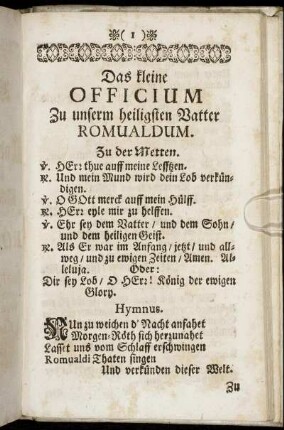 ( 1 )
Das kleine
OFFICIUM
Zu unserm heiligsten Vatter
ROMUALDUM.
Zu der Metten.
℣. HEr: thue auff meine Lefftzen.
℟. Und mein Mund wird dein Lob verkün-
digen.
℣. O GOtt merck auff mein Hülff.
℟. HEr: eyle mir zu helffen.
℣. Ehr sey dem Vatter / und dem Sohn /
und dem heiligen Geist.
℟. Als Er war im Anfang / jetzt / und all-
weg / und zu ewigen Zeiten / Amen. Al-
leluja. Oder:
Dir sey Lob / O HEr:! König der ewigen
Glory.
Hymnus.
NUn zu weichen d' Nacht anfahet
Morgen-Röth sich herzunahet
Lasset uns vom Schlaff erschwingen
Romualdi Thaten singen
Und verkünden dieser Welt.
Zu